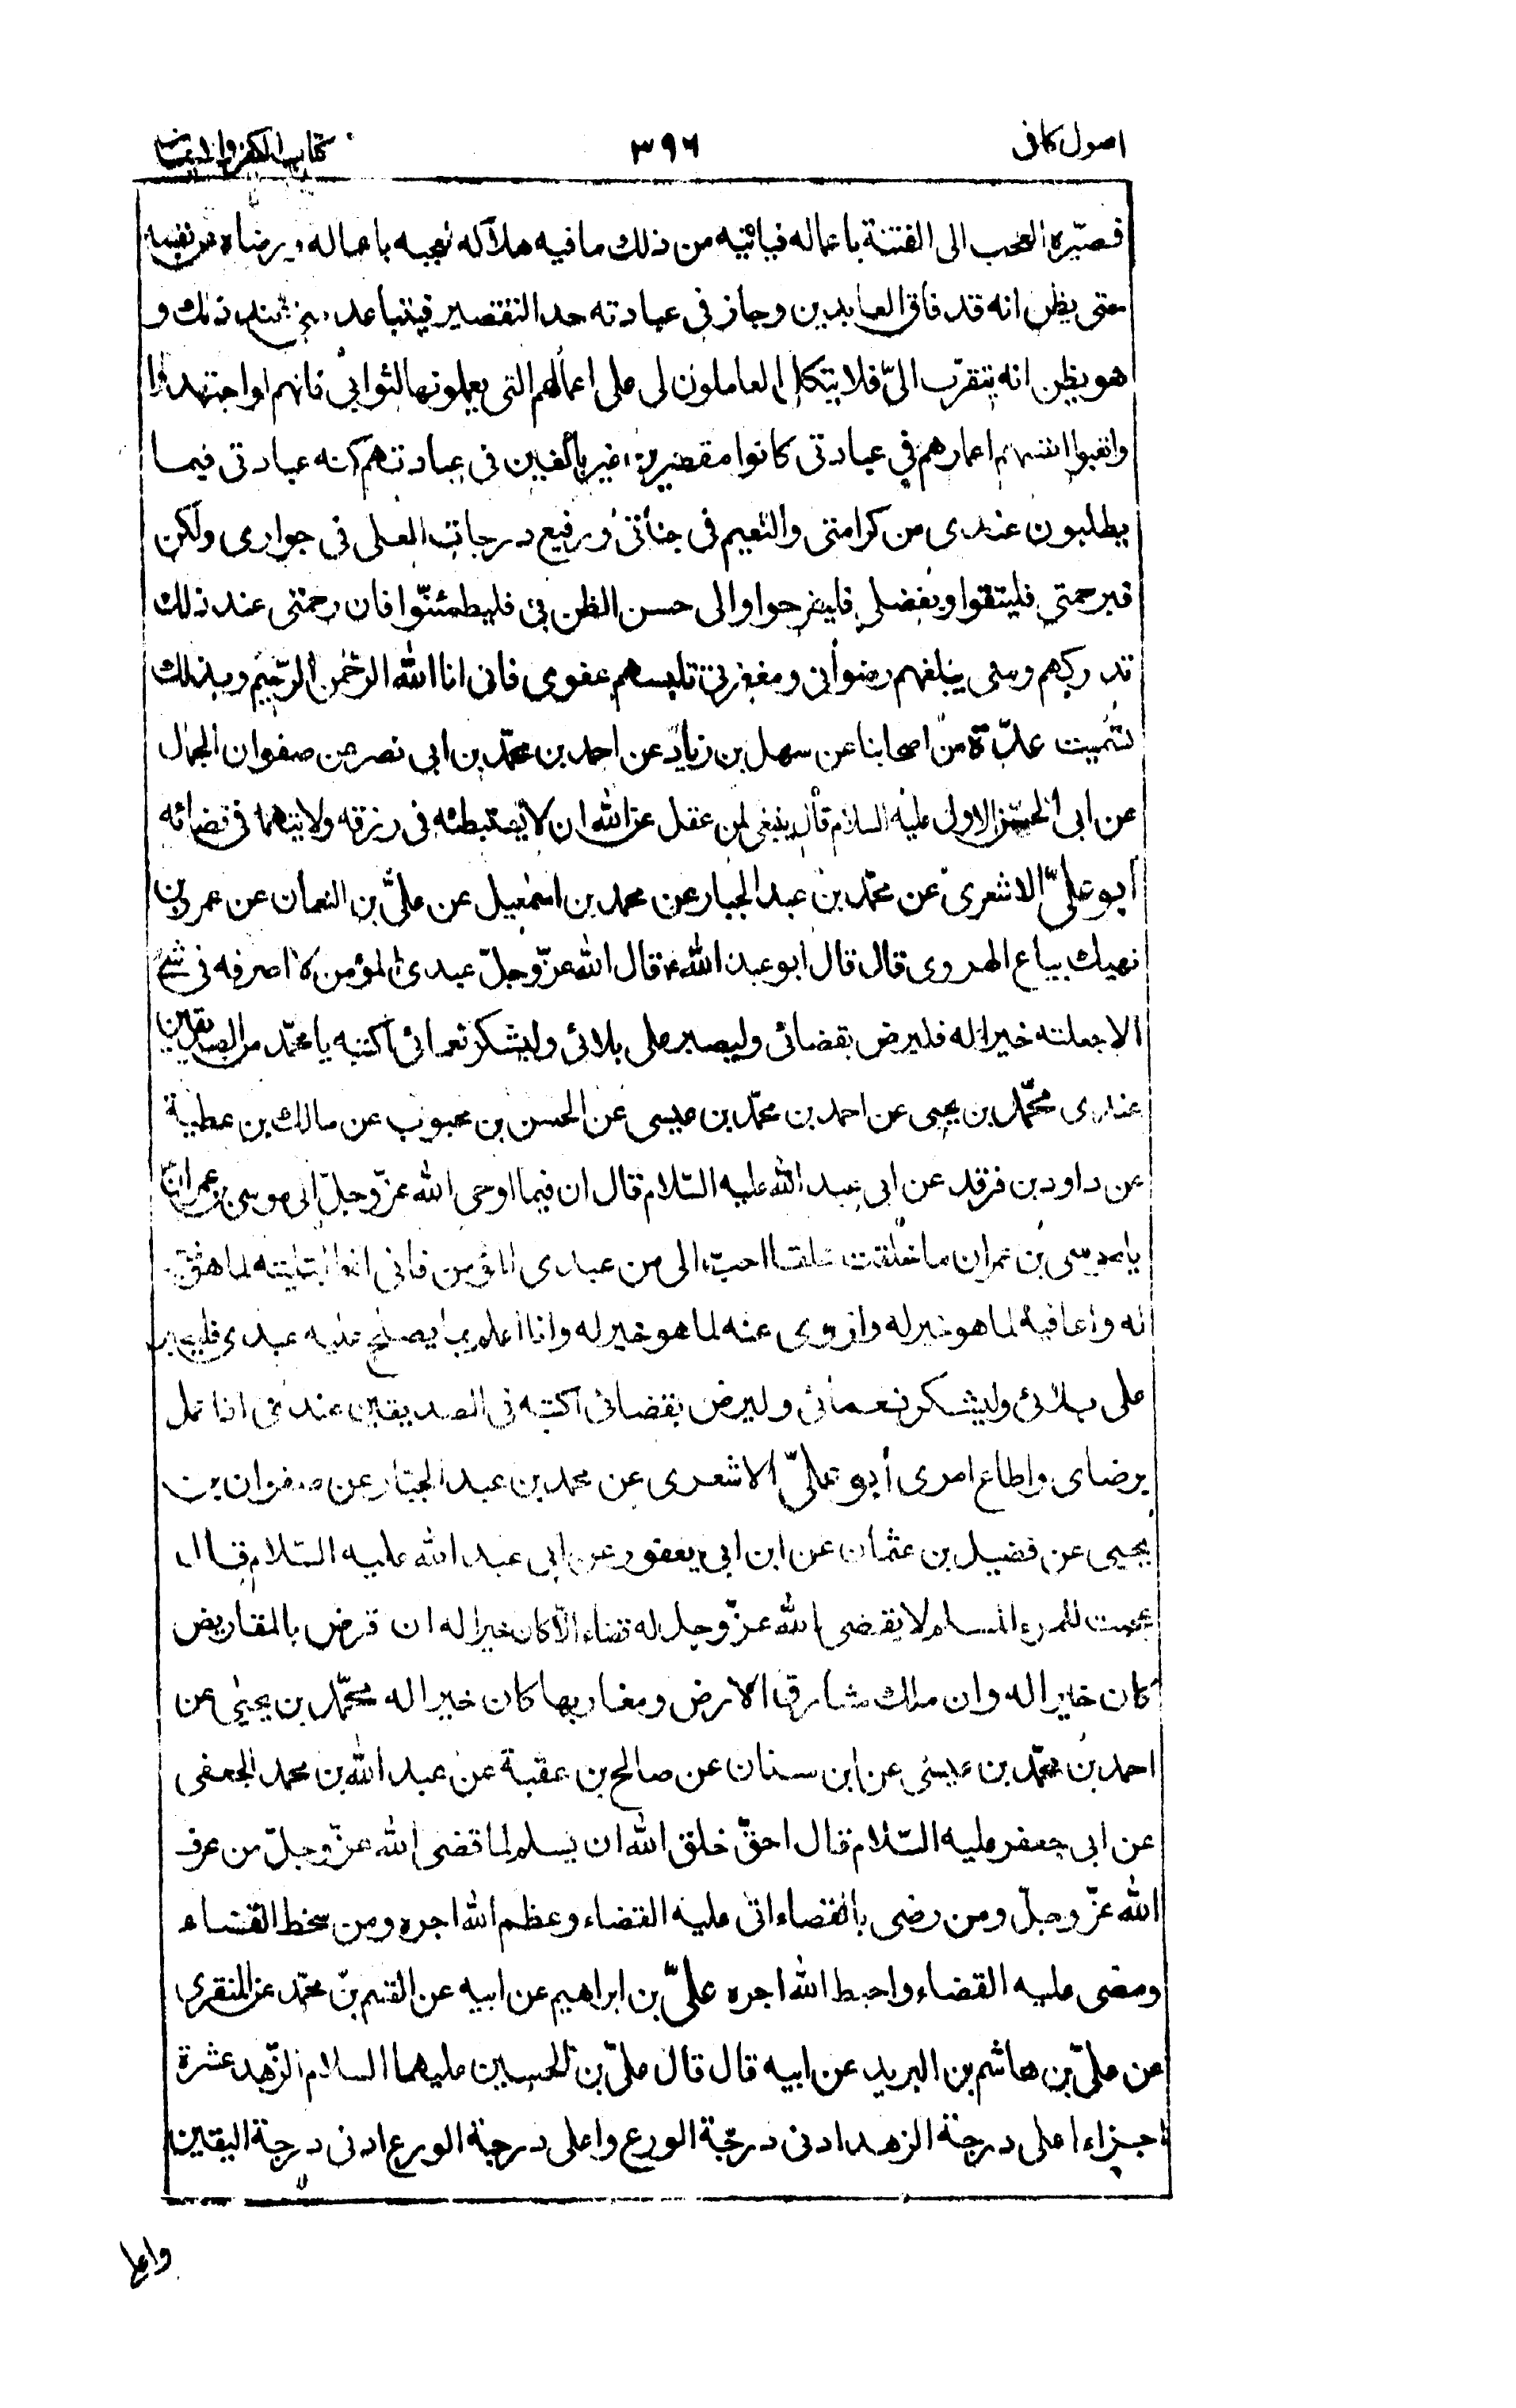 اصول كافى
٣٩٦
كتاب الكفر والايمان
فصيّره العجب الى الفتنة باعماله فياتيه من ذلك ما فيه هلاكه لعجبه باعماله ورضاه عن نفسه
حتى يظن انه قد فاق العابدين وجاز فى عبادته حد التقصير فيتباعد منى عند ذلك و
هو يظن انه يتقرّب الىّ فلا يتكل العاملون لى على اعمالهم التى يعملونها لثوابى فانهم لو اجتهدوا
واتعبوا انفسهم اعمارهم فى عبادتى كانوا مقصرين غير بالغين فى عبادتهم كنه عبادتى فيما
يطلبون عندى من كرامتى والنعيم فى جناتى ورفيع درجاتى العلى فى جوارى ولكن
فبرحمتى فليثقوا وبفضلى فليفرحوا والى حسن الظن بى فليطمئنّوا فان رحمتى عند ذلك
تدركهم ومنى يبلغهم رضوانى ومغفرتى تلبسهم عفوى فانى انا الله الرحمن الرّحيم وبذلك
تسّميت عدّة من اصحابنا عن سهل بن زياد عن احمد بن محمّد بن ابى نصر عن صفوان الجمال
عن ابى الحسن الاول عليه السلام قال ينبغى لمن عقل عن الله ان لا يستبطئه فى رزقه ولا يتهمه فى قضائه
أبو علىّ الاشعرى عن محمّد بن عبد الجبار عن محمد بن اسمعيل عن علىّ بن النعمان عن عمرو بن
نهيك بياع الهروى قال قال ابو عبد الله ع قال الله عزّ وجلّ عبدى المؤمن لا اصرفه فى شئ
الا جعلته خيرا له فليرض بقضائى وليصبر على بلائى وليشكر نعمائى اكتبه يا محمّد من الصديقين
عندى محمّد بن يحيى عن احمد بن محمّد بن عيسى عن الحسن بن محبوب عن مالك بن عطية
عن داود بن فرقد عن ابى عبد الله عليه السّلام قال ان فيما اوحى الله عزّ وجلّ الى موسى بن عمران
يا موسى بن عمران ما خلقت خلقا احبّ الى من عبدى المؤمن فانى انما ابتليته لما هو خير
له واعافيه لما هو خير له وازوى عنه لما هو خير له وانا اعلم بما يصلح عليه عبدى فليصبر
على بلائى وليشكر نعمائى وليرض بقضائى اكتبه فى الصديقين عندى اذا عمل
برضاى واطاع امرى أبو علىّ الاشعرى عن محمد بن عبد الجبّار عن صفوان بن
يحيى عن فضيل بن عثمان عن ابن ابى يعفور عن ابى عبد الله عليه السّلام قال
عجبت للمرء المسلم لا يقضى الله عزّ وجل له قضاء الّا كان خيرا له ان قرض بالمقاريض
كان خيرا له وان ملك مشارق الارض ومغاربها كان خيرا له محمّد بن يحيى عن
احمد بن محمّد بن عيسى عن ابن سنان عن صالح بن عقبة عن عبد الله بن محمد الجعفى
عن ابى جعفر عليه السّلام قال احقّ خلق الله ان يسلم لما قضى الله عزّ وجلّ من عرف
الله عزّ وجلّ ومن رضى بالقضاء اتى عليه القضاء وعظم الله اجره ومن سخط القضاء
ومضى عليه القضاء واحبط الله اجره علىّ بن ابراهيم عن ابيه عن القسم بن محمّد عن المنقرى
عن علىّ بن هاشم بن البريد عن ابيه قال قال علىّ بن الحسين عليهما السلام الزّهد عشرة
اجزاء اعلى درجة الزهد ادنى درجة الورع واعلى درجة الورع ادنى درجة اليقين
واعلى